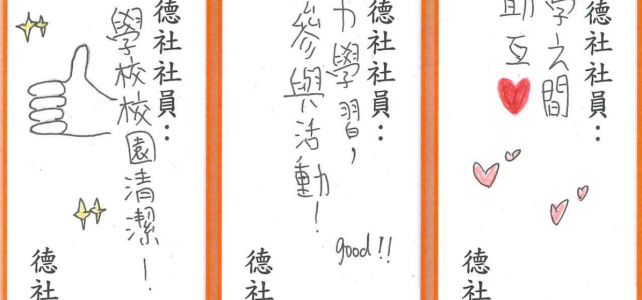 德社社員：
學校校園清潔！
德社
德社社員：
力學習，
參與活動！
good!!
德社
德社社員：
學之間
助互
德社